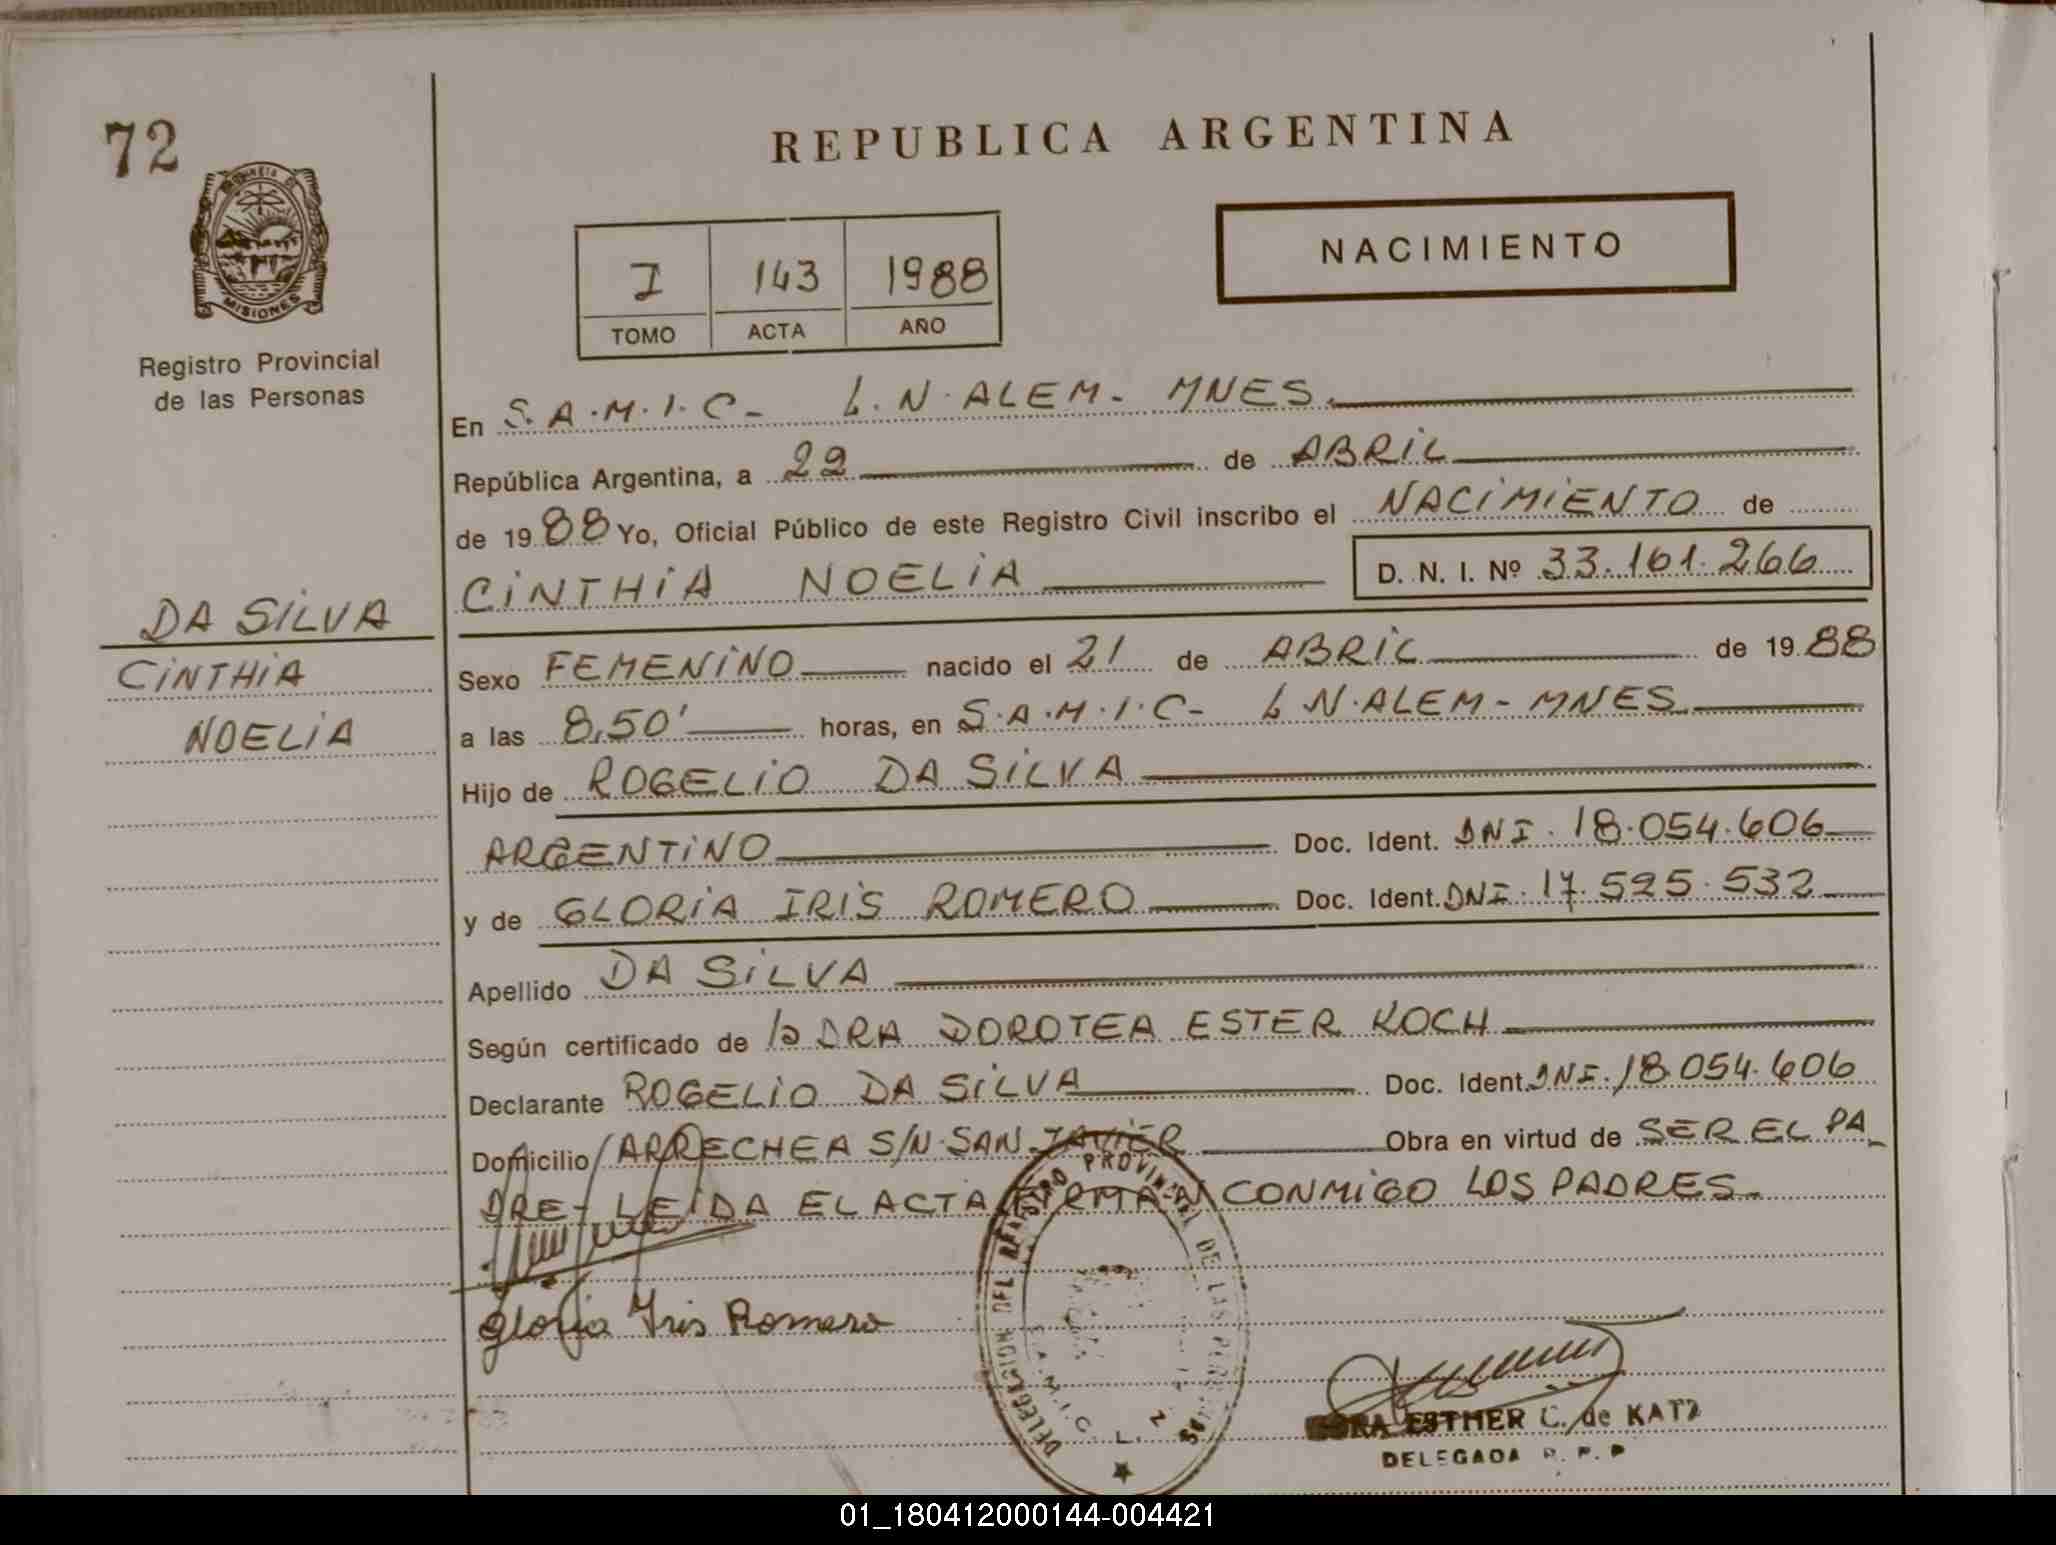 72
REPUBLICA ARGENTINA
NACIMIENTO
I 143 1988
TOMO ACTA AÑO
MISIONES
Registro Provincial
de las Personas
En S.A.M.I.C- L.N.ALEM- MNES.
República Argentina, a 22 de ABRIL
de 1988 Yo, Oficial Público de este Registro Civil inscribo el NACIMIENTO de
CINTHIA NOELIA D. N. I. Nº 33.161.266
DA SILVA
CINTHIA
NOELIA
Sexo FEMENINO nacido el 21 de ABRIL de 1988
a las 8,50' horas, en S.A.M.I.C- L N.ALEM- MNES
Hijo de ROGELIO DA SILVA
ARGENTINO Doc. Ident. DNI. 18.054.606
y de GLORIA IRIS ROMERO Doc. Ident. DNI. 17.525.532
Apellido DA SILVA
Según certificado de la DRA DOROTEA ESTER KOCH
Declarante ROGELIO DA SILVA Doc. Ident. DNI. 18.054.606
Domicilio ARRECHEA S/N. SAN JAVIER Obra en virtud de SER EL PA-
DRE- LEIDA EL ACTA FIRMAN CONMIGO LOS PADRES.
Gloria Iris Romero
DELEGACION DEL REGISTRO PROVINCIAL DE LAS
S.A.M.I.C. L. N.
ESTHER C. de KATZ
DELEGADA R. P. P
01_180412000144-004421